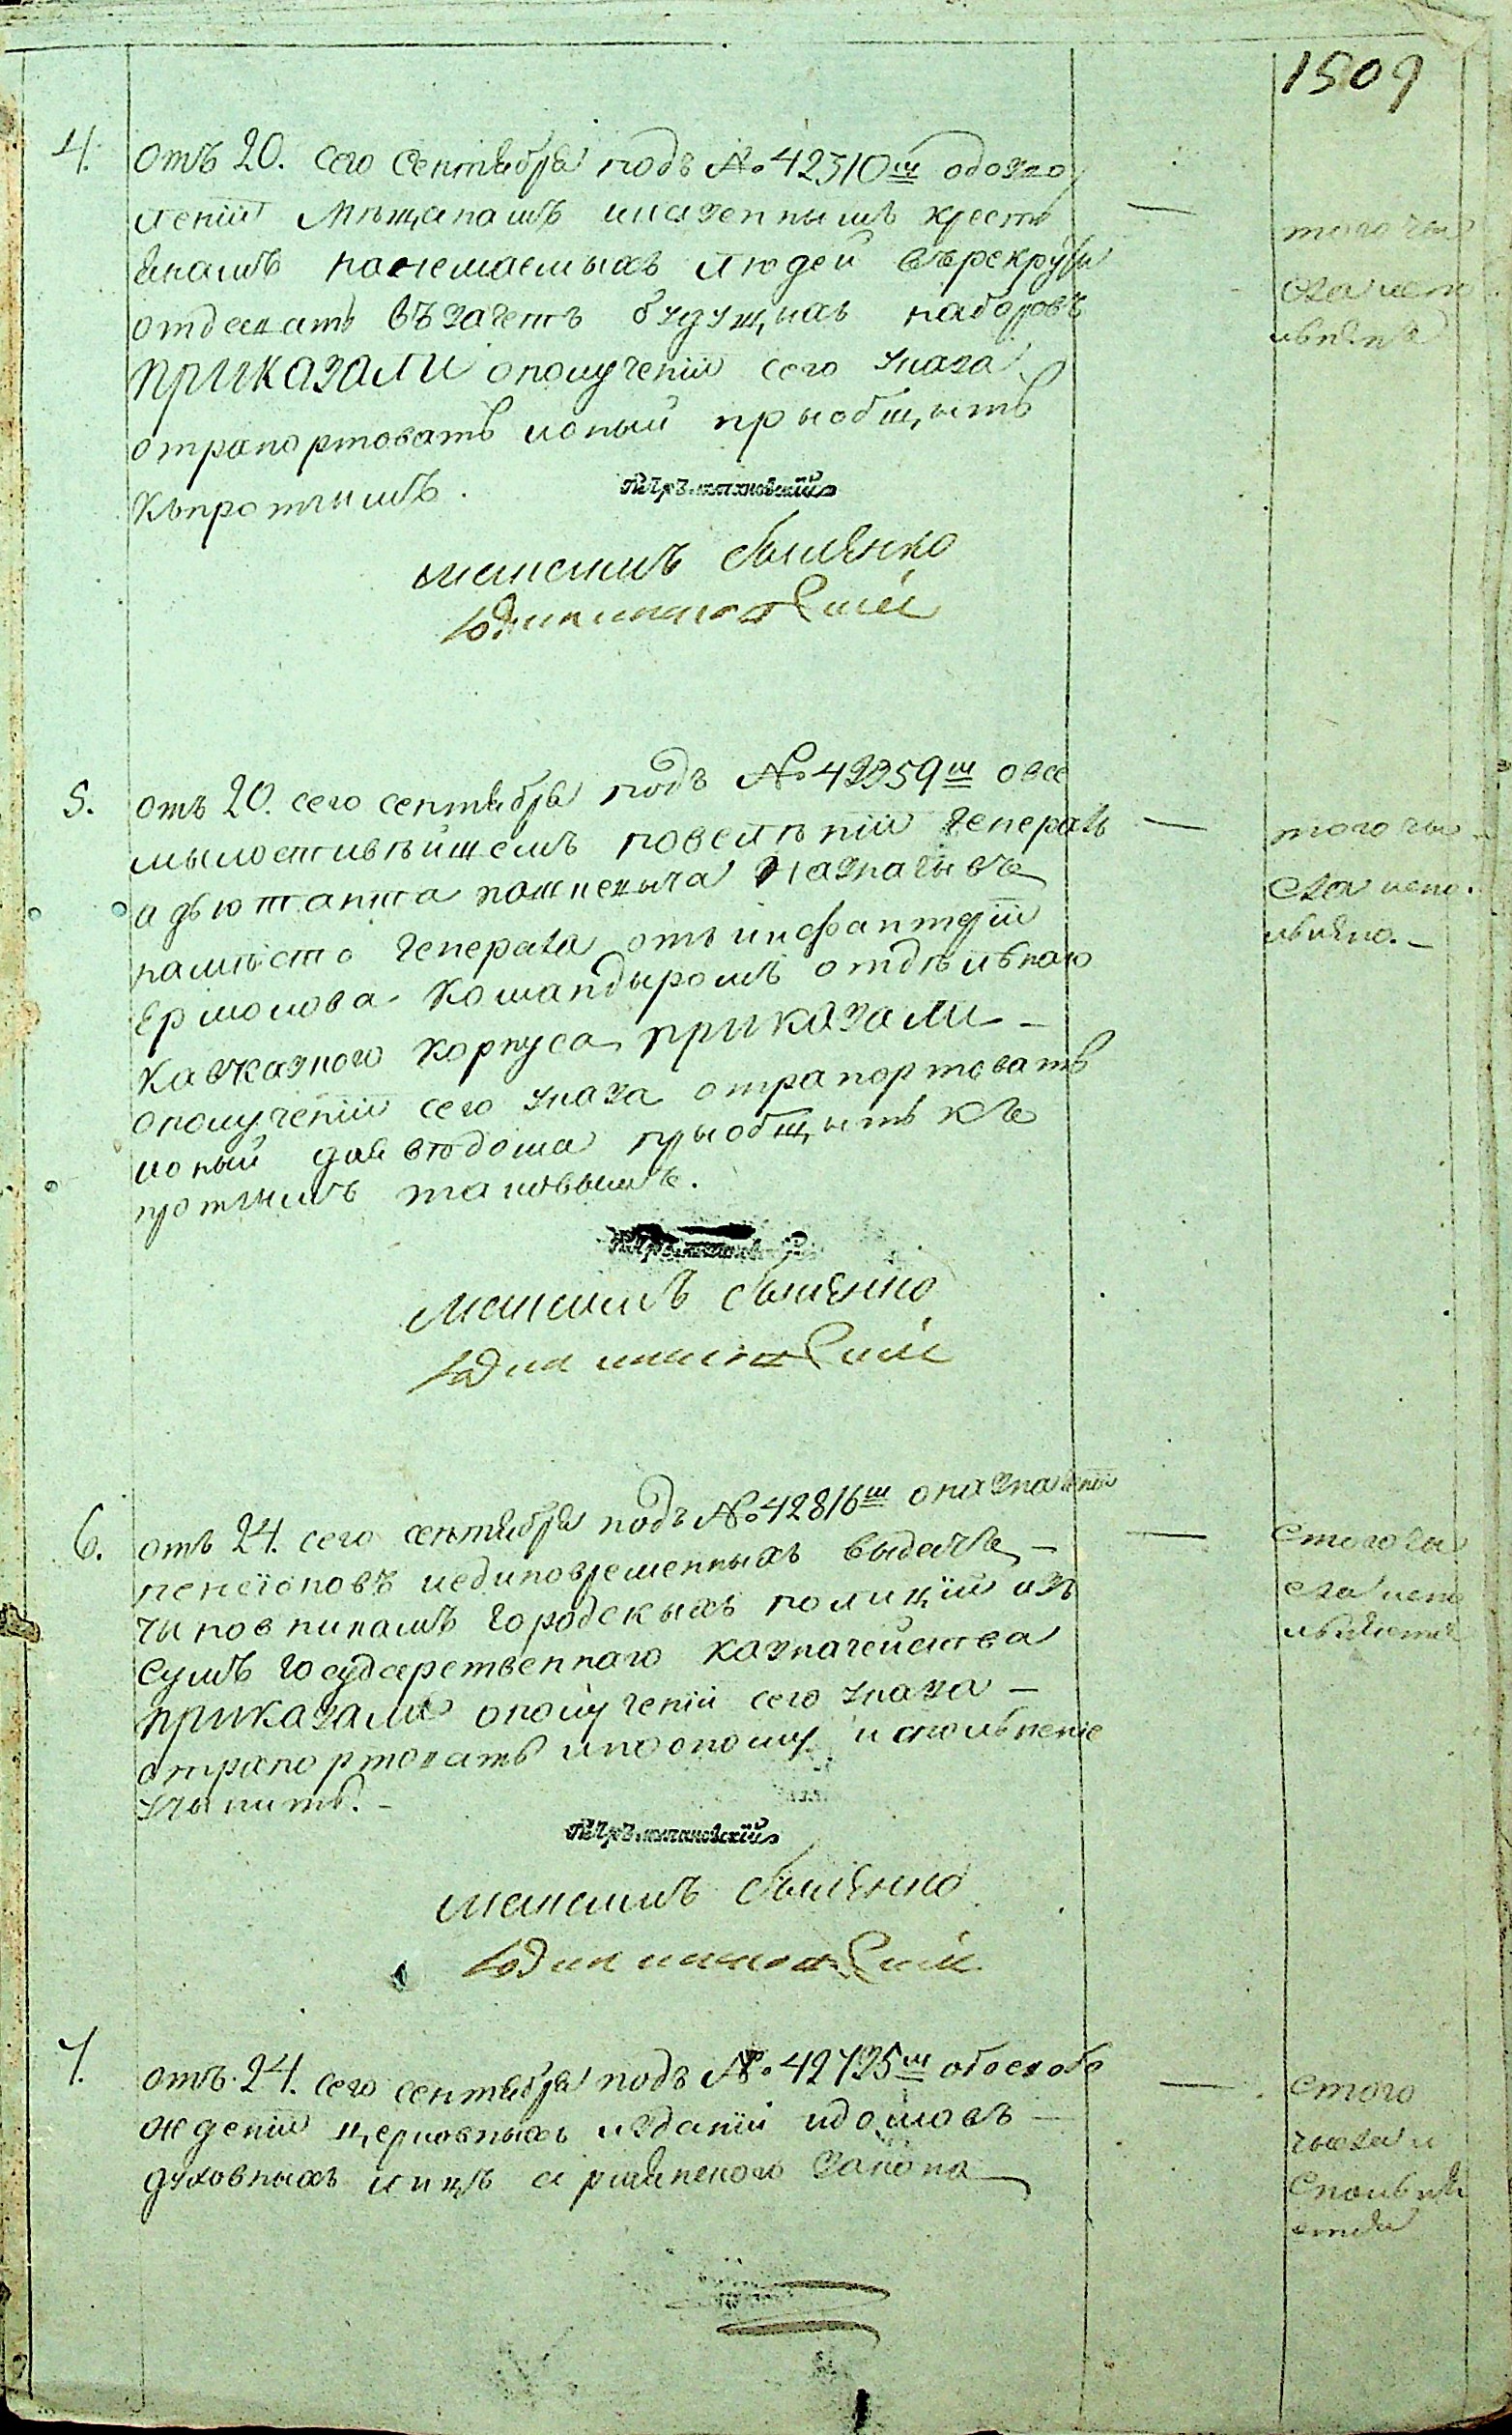 1509
4. отъ 20. сего сентября подъ №42310ш одозво
леніи мѣщанамъ иказеннымъ кресть
янамъ нанемаемыхъ людей върекруты
отдавать въ зачетъ будущихъ наборовъ
приказали ополученіи сего указа
отрапортовать ионый прыобщыть
къпротчимъ.
максимъ
того чы
сла испо
5. отъ 20. сего сентября подъ №42359ш овсе
мылостивѣйшемъ повелѣніи генералъ
адьютанта паскевыча назначывъ
намѣсто генерала отъ инфантеріи
Ермолова командыромъ отдѣльнаго
кавказкого корпуса приказали
ополученіи сего указа отрапортовать
ионый для втодома прыобщыть къ
протчимъ таковымъ.
максимъ
того чы
сла испо
лнено.
6. отъ 24. сего сентября подъ №42816ш оназначеніи
пенсіоновъ иединовременныхъ выдачъ
чыновникамъ городскыхъ полицій изъ
сумъ государственнаго казначейства
приказали ополученіи сего указа
отрапортовать ипооному исполненіе
учынить.
максимъ
стогочы
сла испо
7. отъ 24. сего сентября подъ №42725ш обосвобо
жденіи церковныхъ изданій идомовъ
духовныхъ лицъ армянского закона
стого
чысла и
сполня